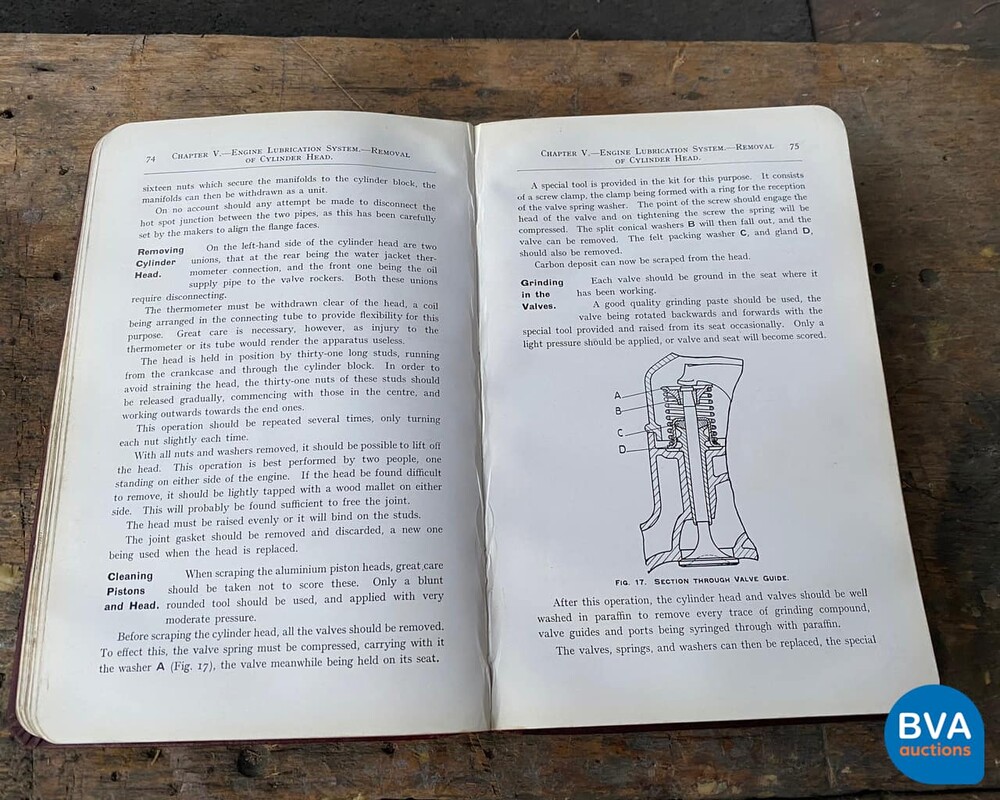 74 Chapter V.—Engine Lubrication System.—Removal
of Cylinder Head.
sixteen nuts which secure the manifolds to the cylinder block, the
manifolds can then be withdrawn as a unit.
On no account should any attempt be made to disconnect the
hot spot junction between the two pipes, as this has been carefully
set by the makers to align the flange faces.
Removing On the left-hand side of the cylinder head are two
Cylinder unions, that at the rear being the water jacket ther-
Head. mometer connection, and the front one being the oil
supply pipe to the valve rockers. Both these unions
require disconnecting.
The thermometer must be withdrawn clear of the head, a coil
being arranged in the connecting tube to provide flexibility for this
purpose. Great care is necessary, however, as injury to the
thermometer or its tube would render the apparatus useless.
The head is held in position by thirty-one long studs, running
from the crankcase and through the cylinder block. In order to
avoid straining the head, the thirty-one nuts of these studs should
be released gradually, commencing with those in the centre, and
working outwards towards the end ones.
This operation should be repeated several times, only turning
each nut slightly each time.
With all nuts and washers removed, it should be possible to lift off
the head. This operation is best performed by two people, one
standing on either side of the engine. If the head be found difficult
to remove, it should be lightly tapped with a wood mallet on either
side. This will probably be found sufficient to free the joint.
The head must be raised evenly or it will bind on the studs.
The joint gasket should be removed and discarded, a new one
being used when the head is replaced.
Cleaning When scraping the aluminium piston heads, great care
Pistons should be taken not to score these. Only a blunt
and Head. rounded tool should be used, and applied with very
moderate pressure.
Before scraping the cylinder head, all the valves should be removed.
To effect this, the valve spring must be compressed, carrying with it
the washer A (Fig. 17), the valve meanwhile being held on its seat.
Chapter V.—Engine Lubrication System.—Removal 75
of Cylinder Head.
A special tool is provided in the kit for this purpose. It consists
of a screw clamp, the clamp being formed with a ring for the reception
of the valve spring washer. The point of the screw should engage the
head of the valve and on tightening the screw the spring will be
compressed. The split conical washers B will then fall out, and the
valve can be removed. The felt packing washer C, and gland D,
should also be removed.
Carbon deposit can now be scraped from the head.
Grinding Each valve should be ground in the seat where it
in the has been working.
Valves. A good quality grinding paste should be used, the
valve being rotated backwards and forwards with the
special tool provided and raised from its seat occasionally. Only a
light pressure should be applied, or valve and seat will become scored.
A
B
C
D
Fig. 17. Section through Valve Guide.
After this operation, the cylinder head and valves should be well
washed in paraffin to remove every trace of grinding compound,
valve guides and ports being syringed through with paraffin.
The valves, springs, and washers can then be replaced, the special
BVA
auctions